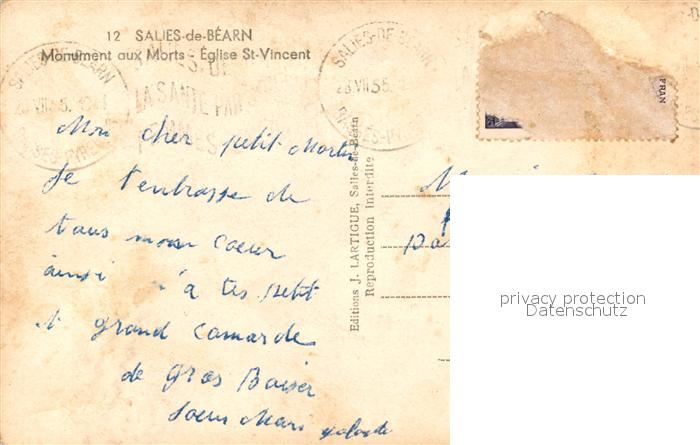 12 SALIES-de-BÉARN
Monument aux Morts - Église St-Vincent
SALIES-DE-BÉARN
LA SANTÉ PAR
SALIES-DE-BÉARN
28 VII 55
FRAN
Mon cher petit Martin
Je t'enbrasse de
tous mon coeur
ainsi a tes petit
et grand camarde
de gros Baiser
Soeur Marie
Editions J. LARTIGUE, Salies-de-Béarn
Reproduction interdite
privacy protection
Datenschutz